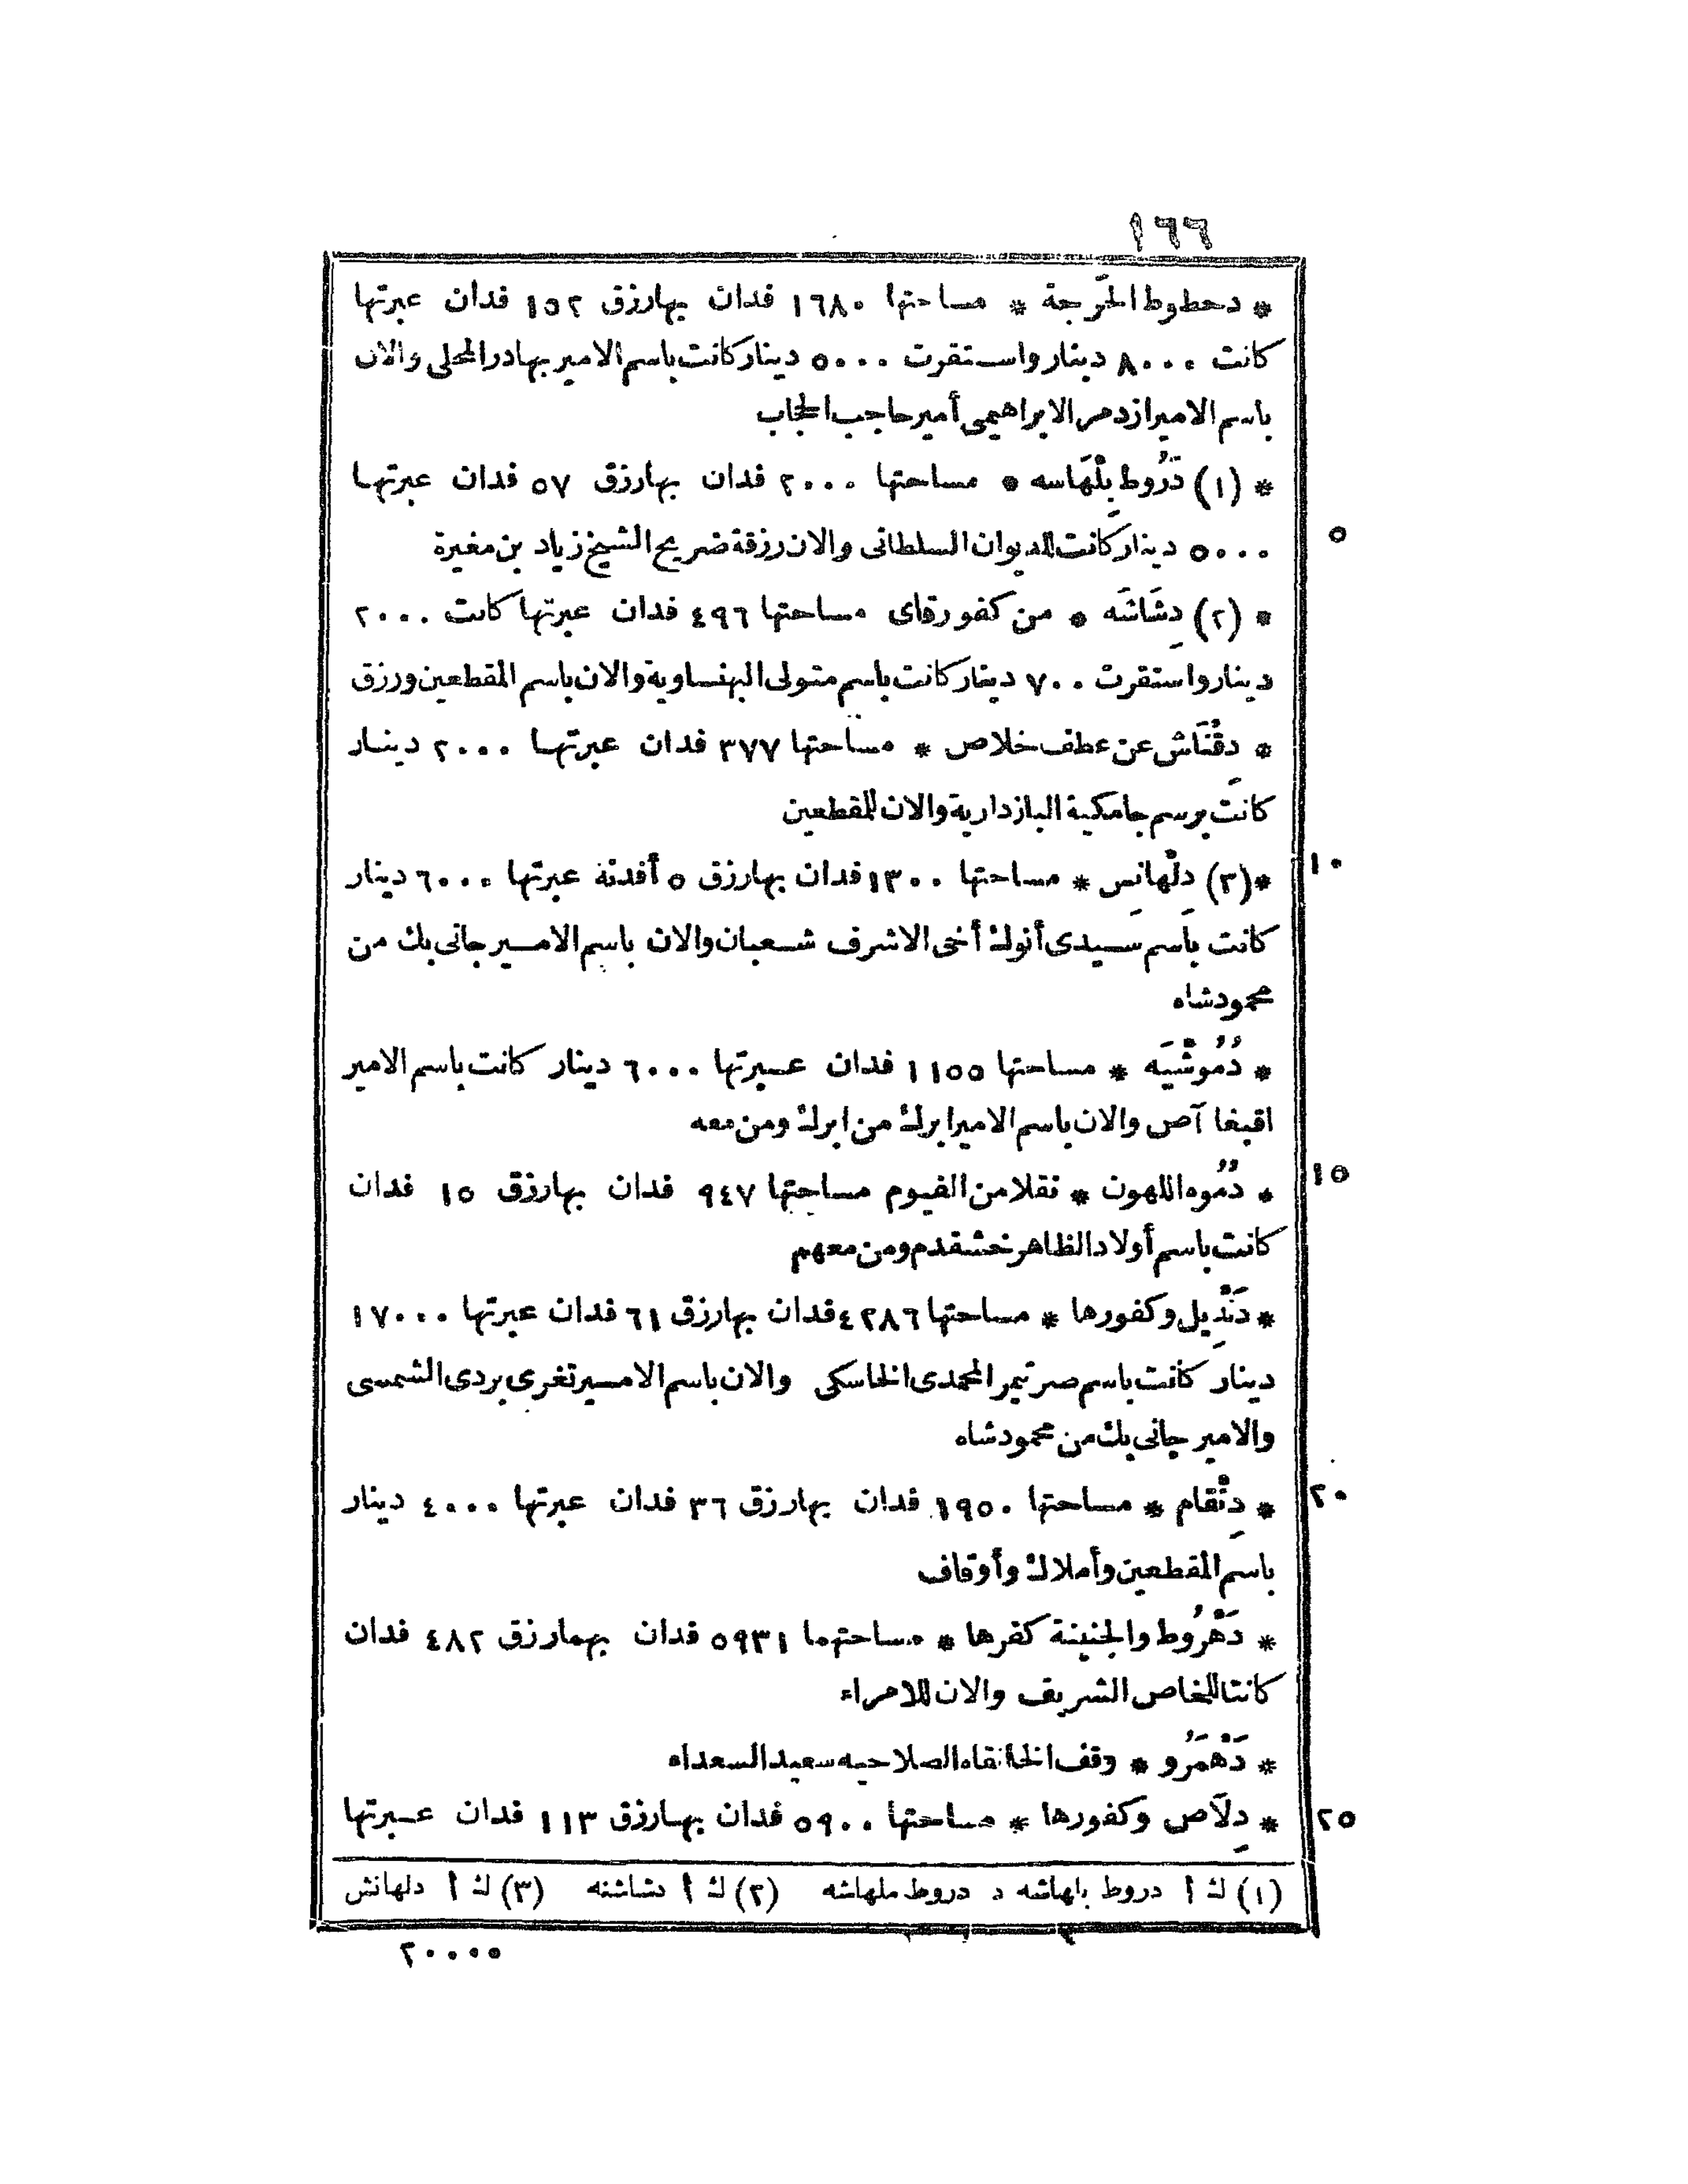 ١٦٦
* دحطوط الحَّرجة * مساحتها ١٦٨٠ فدان بهارزق ١٥٢ فدان عبرتها
كانت ٨٠٠٠ دينار واستقرت ٥٠٠٠ دينار كانت باسم الامير بهادر المحلى والان
باسم الامير ازدمر الابراهيمى أمير حاجب الحجاب
* (١) دَرُوط بِلْهَاسه * مساحتها ٢٠٠٠ فدان بهارزق ٥٧ فدان عبرتها
٥
٥٠٠٠ دينار كانت للديوان السلطانى والان رزقة ضريح الشيخ زياد بن مغيرة
* (٢) دِشَاشَه * من كفور قاى مساحتها ٤٩٦ فدان عبرتها كانت ٢٠٠٠
دينار واستقرت ٧٠٠ دينار كانت باسم متولى البهنساوية والان باسم المقطعين ورزق
* دِقْنَاش عن عطف خلاص * مساحتها ٣٧٧ فدان عبرتها ٢٠٠٠ دينار
كانت برسم جامكية البازدارية والان للمقطعين
١٠
*(٣) دِلْهانِس * مساحتها ١٣٠٠ فدان بهارزق ٥ أفدنة عبرتها ٦٠٠٠ دينار
كانت باسم سيدى أنوك أخى الاشرف شعبان والان باسم الامير جانى بك من
محمودشاه
* دُمُوشْيَه * مساحتها ١١٥٥ فدان عبرتها ٦٠٠٠ دينار كانت باسم الامير
اقبغا آص والان باسم الامير ابرك من ابرك ومن معه
١٥
* دُمُوه اللهون * نقلا من الفيوم مساحتها ٩٤٧ فدان بهارزق ١٥ فدان
كانت باسم أولاد الظاهر خشقدم ومن معهم
* دَنْدِيل وكفورها * مساحتها ٤٢٨٦ فدان بهارزق ٦١ فدان عبرتها ١٧٠٠٠
دينار كانت باسم صرتمر المحمدى الخاسكى والان باسم الامير تغرى بردى الشمسى
والامير جانى بك من محمودشاه
٢٠
* دِنْقام * مساحتها ١٩٥٠ فدان بهارزق ٣٦ فدان عبرتها ٤٠٠٠ دينار
باسم المقطعين وأملاك وأوقاف
* دَهْرُوط والجنينة كفرها * مساحتهما ٥٩٣١ فدان بهمارزق ٤٨٢ فدان
كانتا للخاص الشريف والان للامراء
* دَهْمَرُو * وقف الخانقاه الصلاحيه سعيد السعداء
٢٥
* دِلَاص وكفورها * مساحتها ٥٩٠٠ فدان بهارزق ١١٣ فدان عبرتها
(١) ك أ دروط بلهاشه د دروط ملهاشه (٢) ك أ دشاشنه (٣) ك أ دلهانش
٢٠٠٠٠